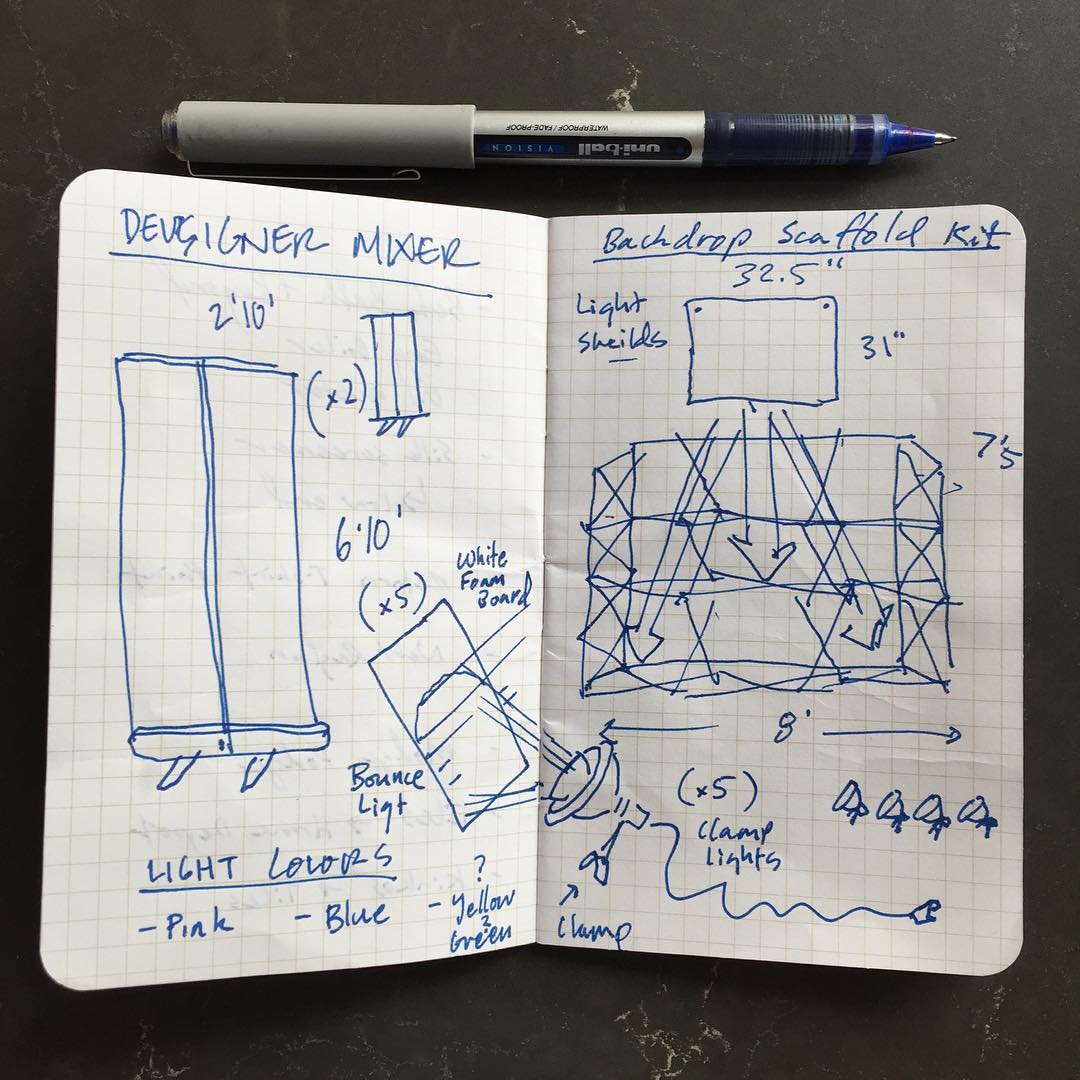 WATERPROOF / FADE-PROOF
uni-ball
VISION
DEVSIGNER MIXER
2'10'
(x2)
6'10'
(x5)
White
Foam
Board
Bounce
Ligt
LIGHT COLORS
- Pink
- Blue
?
- Yellow
?
Green
Backdrop Scaffold Kit
32.5"
Light
Sheilds
31"
7'5
8'
(x5)
Clamp
Lights
Clamp